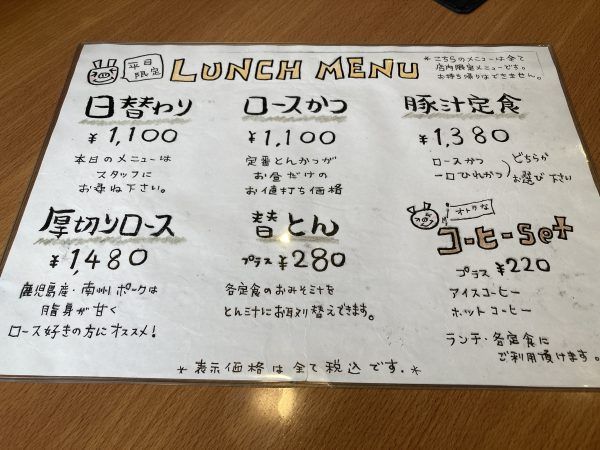 平日限定
LUNCH MENU
*こちらのメニューは全て
店内限定メニューです。
お持ち帰りはできません。
日替わり
¥1,100
本日のメニューは
スタッフに
お尋ね下さい。
ロースかつ
¥1,100
定番とんかつが
お昼だけの
お値打ち価格
豚汁定食
¥1,380
ロースかつ
一口ひれかつ
どちらか
お選び下さい
厚切りロース
¥1,480
鹿児島産・南州ポークは
脂身が甘く
ロース好きの方にオススメ!
替とん
プラス ¥280
各定食のおみそ汁を
とん汁にお取り替えできます。
オトクな
コーヒーset
プラス ¥220
アイスコーヒー
ホットコーヒー
ランチ・各定食に
ご利用頂けます。
*表示価格は全て税込です.*